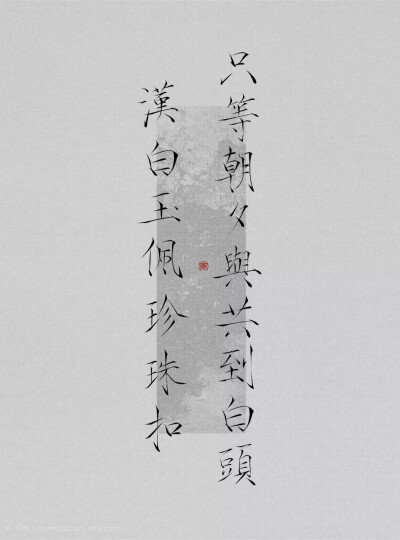 只等朝夕與共到白頭
漢白玉佩珍珠扣